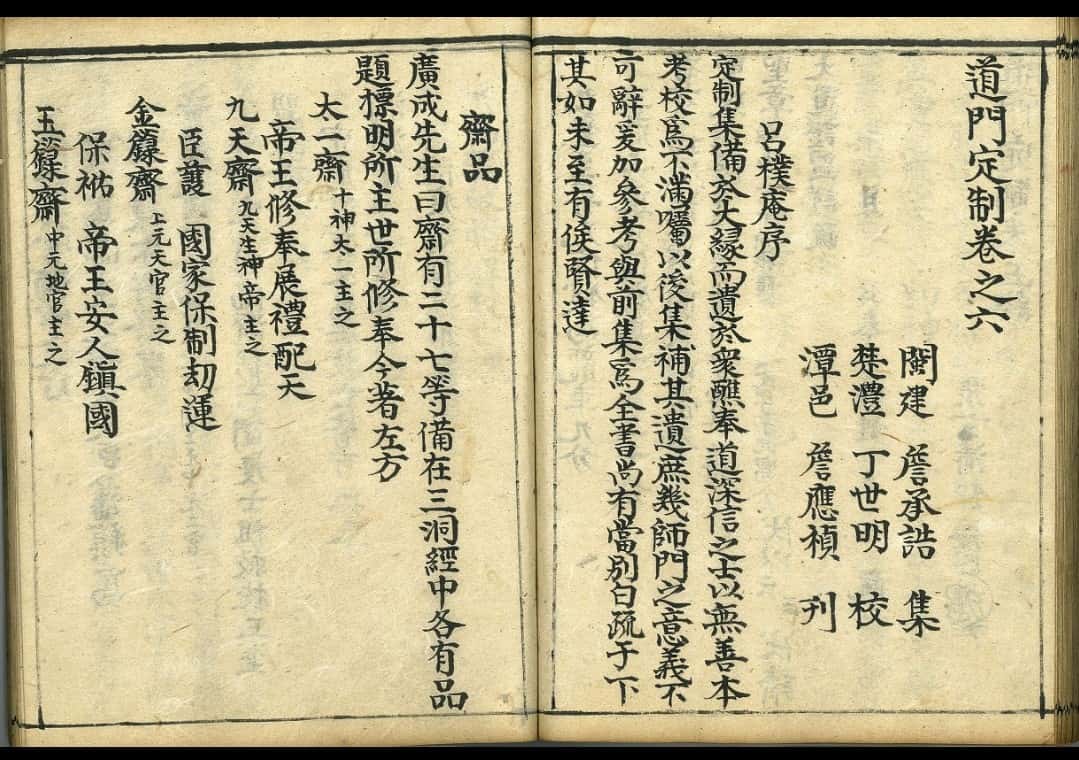 道門定制卷之六
閩建 詹承誥 集
楚澧 丁世明 校
潭邑 詹應楨 刊
呂樸庵序
定制集備於大緣而遺於眾醮奉道深信之士以無善本
考校爲不滿囑以後集補其遺庶幾師門之意義不
可辭爰加參考與前集爲全書尚有當別白疏于下
其如未至有俟賢達
齋品
廣成先生曰齋有二十七等備在三洞經中各有品
題標明所主世所修奉今著左方
太一齋 十神太一主之
帝王修奉展禮配天
九天齋 九天生神帝主之
臣護 國家保制劫運
金籙齋 上元天官主之
保祐 帝王安人鎮國
玉籙齋 中元地官主之